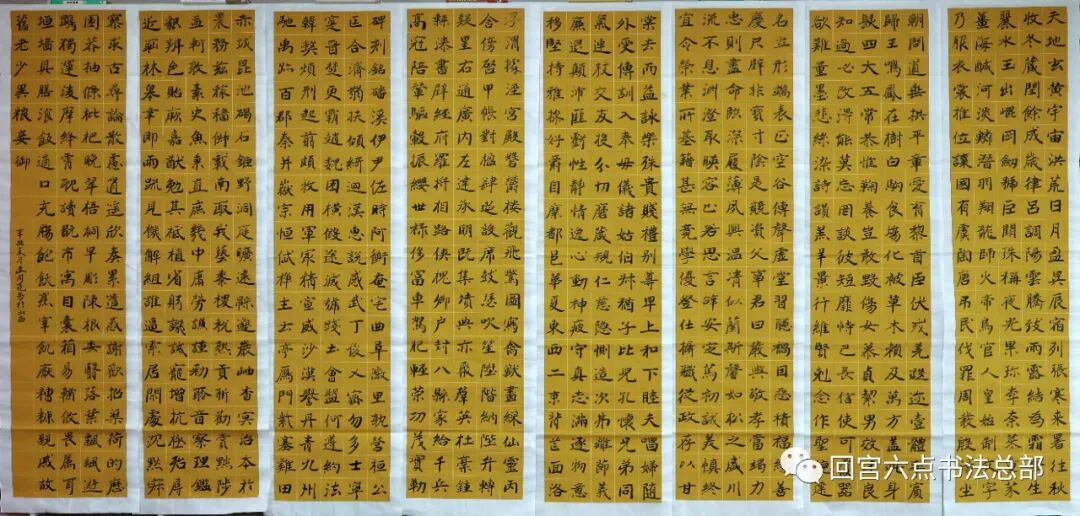 天地玄黄宇宙洪荒日月盈昃辰宿列張寒来暑往秋
收冬藏閏餘成歲律吕調陽雲騰致雨露結為霜金生
麗水玉出崐岡劍號巨闕珠稱夜光果珍李柰菜重芥
薑海鹹河淡鱗潛羽翔龍師火帝鳥官人皇始制文字
乃服衣裳推位讓國有虞陶唐吊民伐罪周發殷湯坐
朝問道垂拱平章愛育黎首臣伏戎羌遐邇壹體率賓
歸王鳴鳳在樹白駒食場化被草木賴及萬方盖此身
髮四大五常恭惟鞠養豈敢毁傷女慕貞絜男效才良
知過必改得能莫忘罔談彼短靡恃己長信使可覆器
欲難量墨悲絲染詩讚羔羊景行維賢剋念作聖德建
名立形端表正空谷傳聲虛堂習聽禍因惡積福緣善
慶尺璧非寶寸陰是競資父事君曰嚴與敬孝當竭力
忠則盡命臨深履薄夙興溫清似蘭斯馨如松之盛川
流不息淵澄取暎容止若思言辭安定篤初誠美慎終
宜令榮業所基籍甚無竟學優登仕攝職從政存以甘
棠去而益詠樂殊貴賤禮別尊卑上和下睦夫唱婦隨
外受傅訓入奉母儀諸姑伯叔猶子比兒孔懷兄弟同
氣連枝交友投分切磨箴規仁慈隱惻造次弗離節義
廉退顛沛匪虧性静情逸心動神疲守真志滿逐物意
移堅持雅操好爵自縻都邑華夏東西二京背芒面洛
浮渭據涇宮殿盤鬱樓觀飛驚圖寫禽獸畫綵仙靈丙
舍傍啓甲帳對楹肆筵設席鼓瑟吹笙陞階納陛弁轉
疑星右通廣內左達承明既集墳典亦聚群英杜稾鍾
隸漆書壁經府羅將相路俠槐卿户封八縣家給千兵
高冠陪輦驅轂振纓世禄侈富車駕肥輕策功茂實勒
碑刻銘磻溪伊尹佐時阿衡奄宅曲阜微旦孰營桓公
匡合濟弱扶傾綺迴漢惠說感武丁俊乂密勿多士寔
寧晉楚更霸趙魏困橫假途滅虢踐土會盟何遵約法
韓弊煩刑起翦頗牧用軍最精宣威沙漠譽丹青九州
馳禹跡百郡秦并嶽宗恒岱禪主云亭雁門紫塞雞田
赤城昆池碣石鉅野洞庭曠遠緜邈巖岫杳冥治本於
農務兹稼穡俶載南畝我藝黍稷税熟貢新勸賞黜陟
孟軻敦素史魚秉直庶幾中庸勞謙謹勑聆音察理鑑
貌辨色貽厥嘉猷勉其祗植省躬譏誡寵增抗極殆辱
近恥林皋幸即兩疏見機解組誰逼索居閒處沉默寂
寥求古尋論散慮逍遥欣奏累遣慼謝歡招渠荷的歷
園莽抽條枇杷晚翠梧桐早彫陳根委翳落葉飄颻遊
鵾獨運凌摩絳霄耽讀翫市寓目囊箱易輶攸畏屬耳
垣牆具膳飡飯適口充腸飽飫烹宰飢厭糟糠親戚故
舊老少異糧妾御
回宫六点书法总部